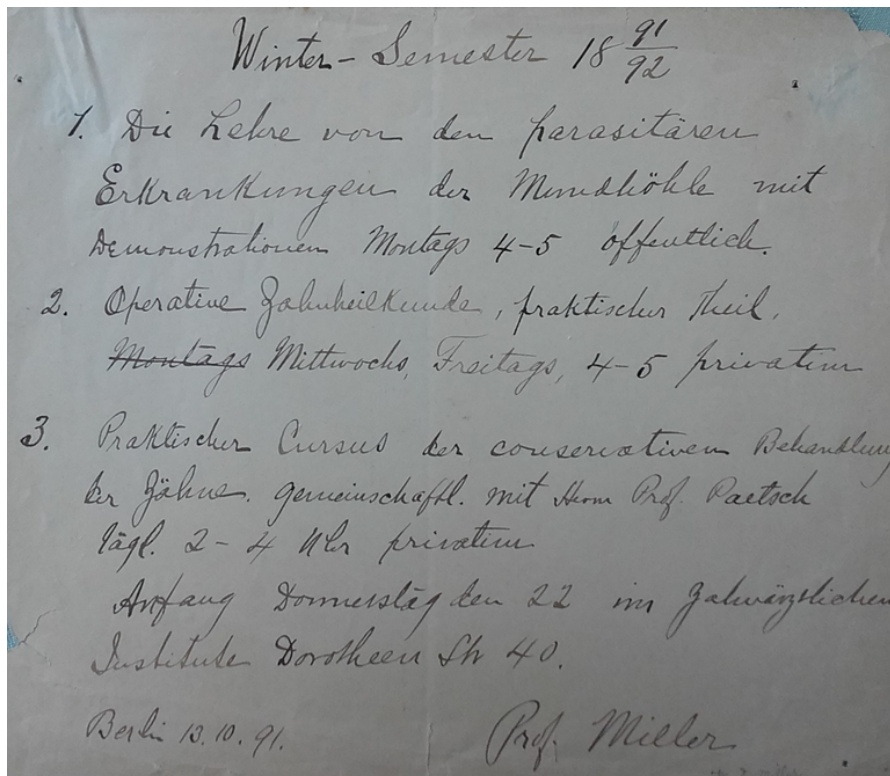 Winter-Semester 18 91/92
1. Die Lehre von den parasitären
Erkrankungen der Mundhöhle mit
Demonstrationen Montags 4-5 öffentlich.
2. Operative Zahnheilkunde, praktischer Theil,
Montags Mittwochs, Freitags, 4-5 privatim
3. Praktischer Cursus der conservativen Behandlung
der Zähne. gemeinschaftl. mit Herrn Prof. Paetsch
tägl. 2-4 Uhr privatim
Anfang Donnerstag den 22 im Zahnärztlichen
Institute Dorotheen Str 40.
Berlin 13.10.91.
Prof. Miller